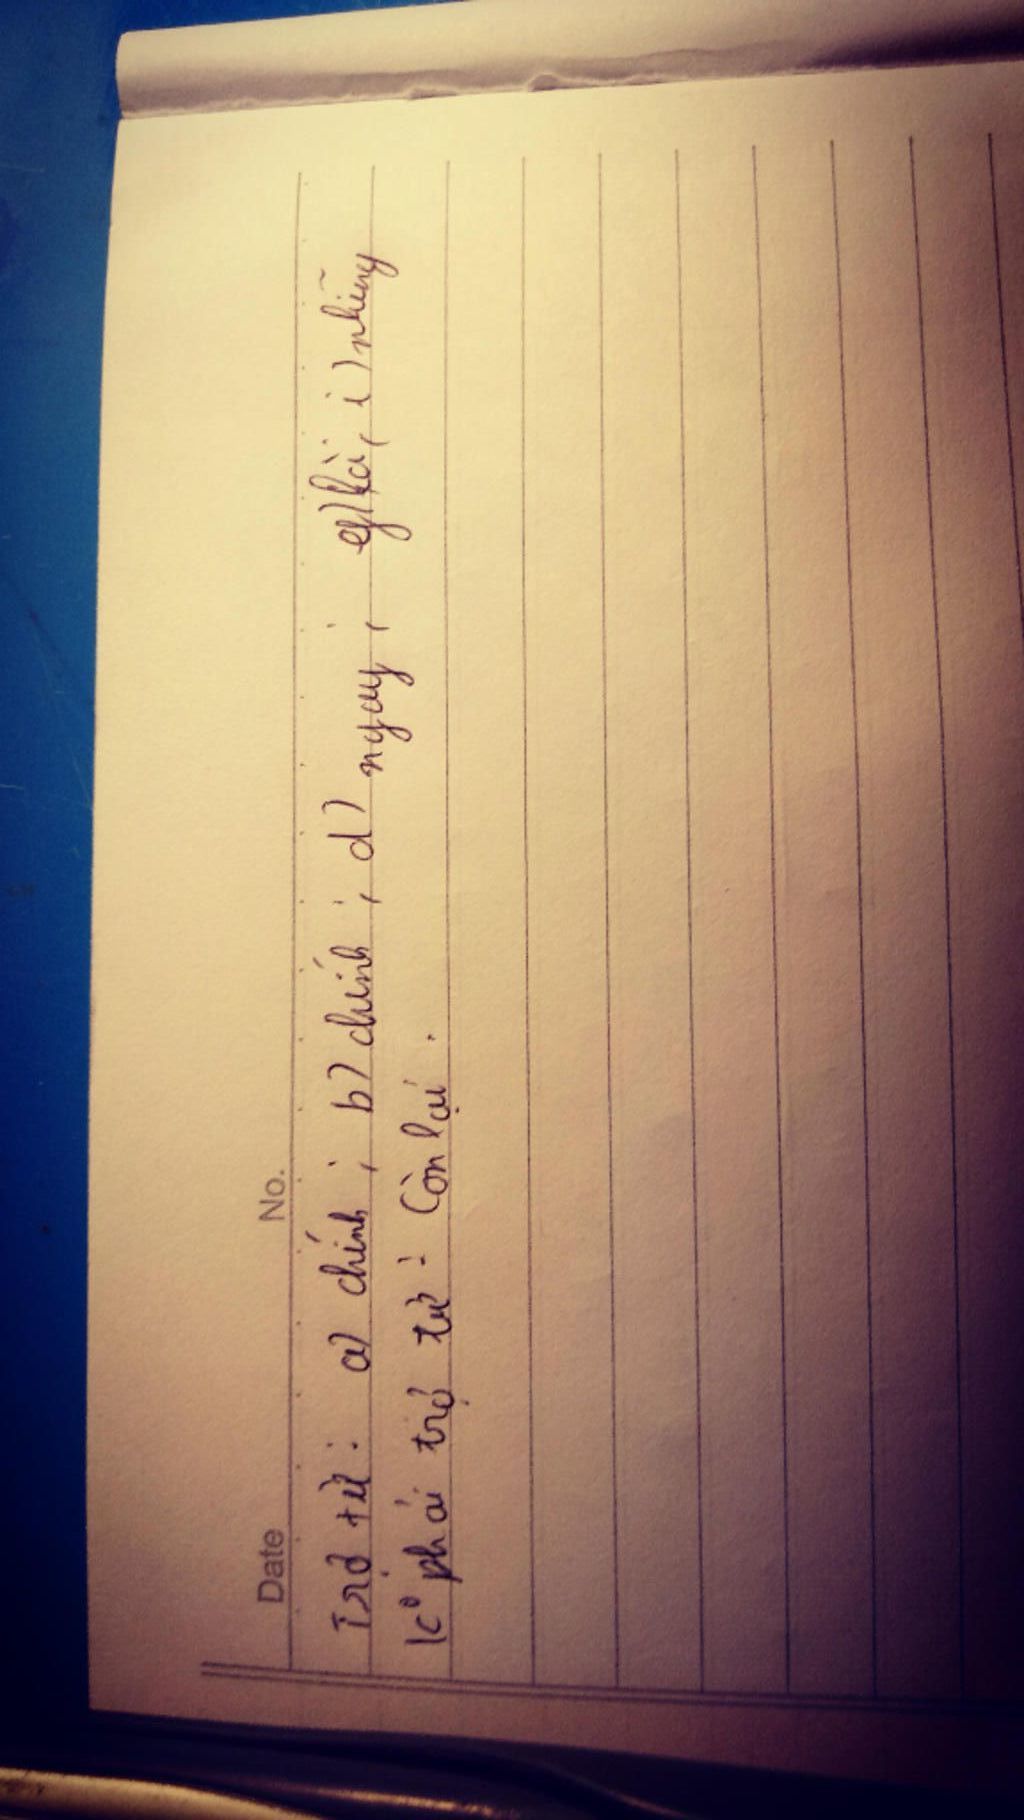 Date No.
Trợ từ: a) chính; b) chính; d) ngay; g) là; i) những
K° phải trợ từ: Còn lại.